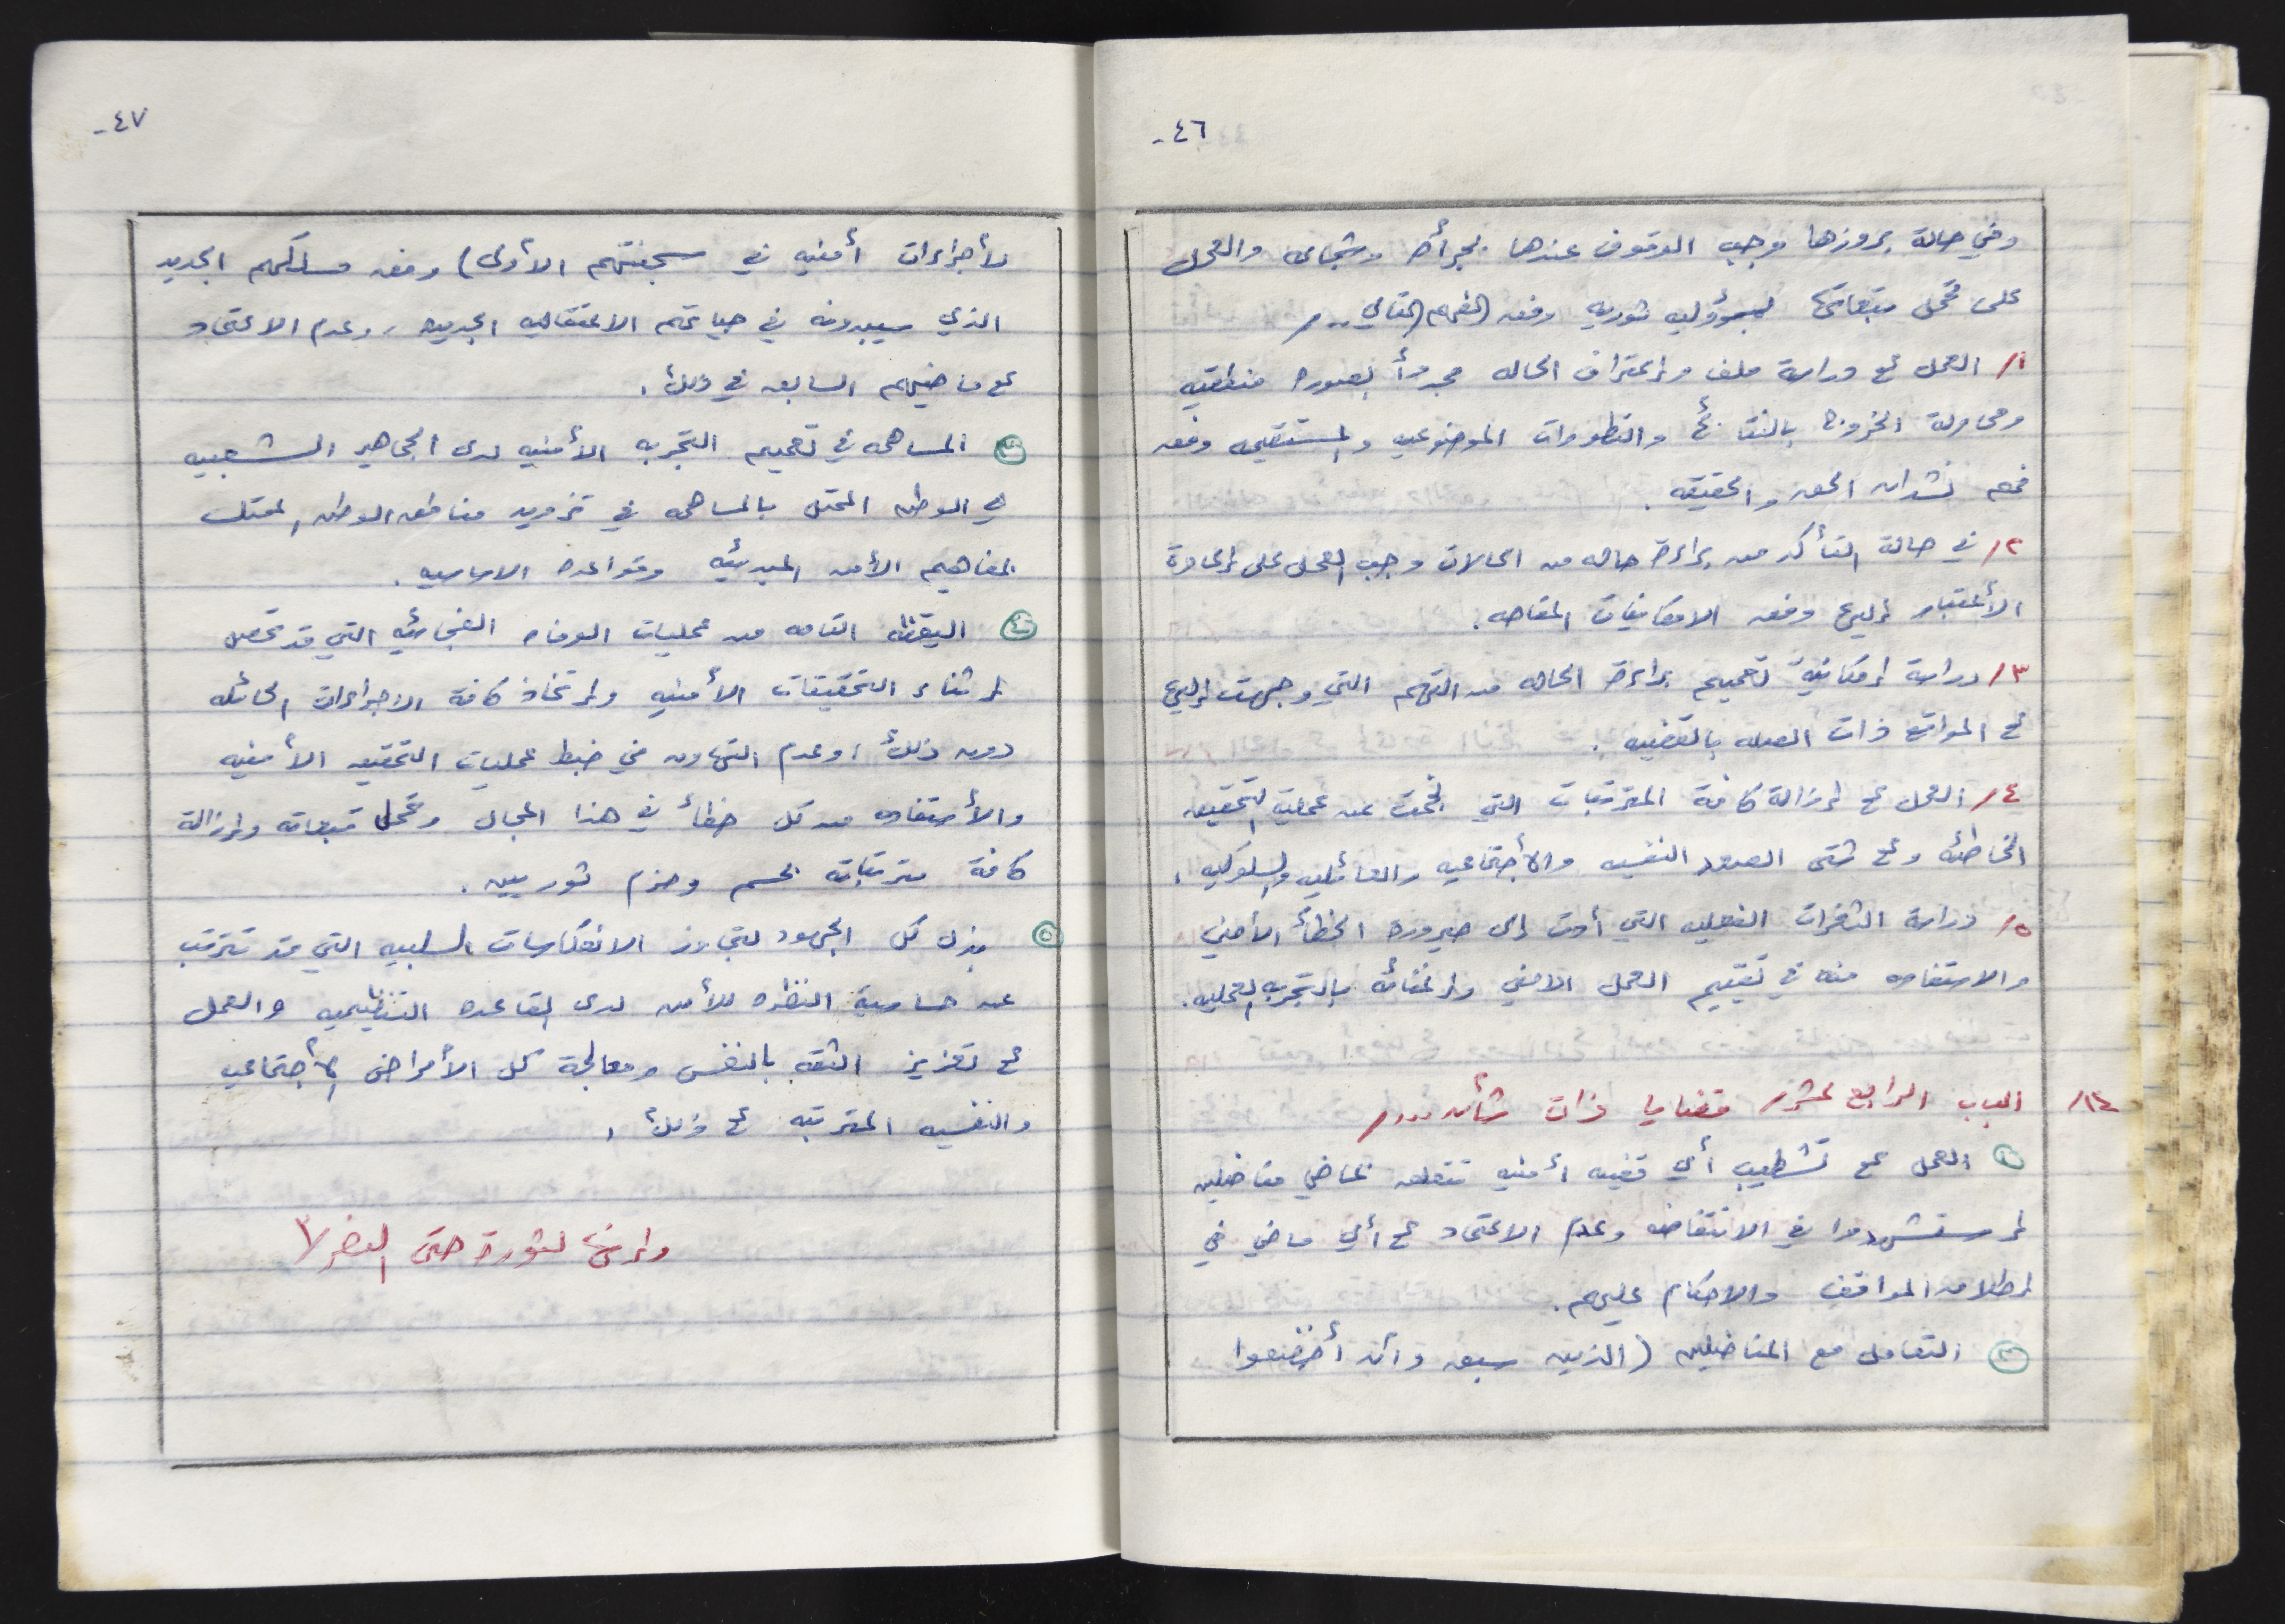 ٤٦-
وفي حالة بروزها وجب الوقوف عندها بجرأه وشجاعه والعمل
على تحمل تبعاتها بمسؤوليه ثوريه وفق الفهم التالي ../
١/ العمل ع دراسة ملف وإعتراف الحاله مجدداً بصوره منطقيه
ومحاولة الخروج بالنتائج والتطورات الموضوعيه والمستقيمه وفق
فهم نشدان الحق والحقيقه.
٢/ في حالة التأكد من براءة حاله من الحالات وجب العمل على إعادة
الأعتبار إليها وفق الامكانيات المتاحه.
٣/ دراسة إمكانية تعميم براءة الحاله من التهم التي وجهت إليها
ع المواقع ذات الصله بالقضيه.
٤/ العمل ع إزالة كافة المترتبات التي نجمت عن عملية التحقيق
الخاطئه وع شتى الصعد النفسيه والأجتماعيه والعائليه والسلوكيه.
٥/ دراسة الثغرات الفعليه التي أدت إلى صيرورة الخطأ الأمني
والاستفاده منه في تقييم العمل الامني وإغنائه بالتجربه العمليه.
١٤/ الباب الرابع عشر/ قضايا ذات شأن .../
① العمل ع تشطيب أي قضيه أمنيه تتعلق بماضي مناضلين
إستشهدوا في الانتفاضه وعدم الاعتماد ع أي ماضي في
إطلاق المواقف والاحكام عليهم.
② التعامل مع المناضلين (الذين سبق وأن أخضعوا
٤٧-
لأجراءات أمنيه في سجنتهم الأولى) وفق مسلكهم الجديد
الذي سيبدونه في حياتهم الاعتقاليه الجديده، وعدم الاعتماد
ع ماضيهم السابق في ذلك.
③ المساهمه في تعميم التجربه الأمنيه لدى الجماهير الشعبيه
في الوطن المحتل بالمساهمه في تزويد مناطق الوطن المحتل
بمفاهيم الأمن المبدئيه وقواعده الاساسيه.
④ اليقظه التامه من عمليات الوفاه الفجائيه التي قد تحصل
إثناء التحقيقات الأمنيه وإتخاذ كافة الاجراءات الحائله
دون ذلك، وعدم التهاون في ضبط عمليات التحقيق الأمنيه
والأستفاده من كل خطأ في هذا المجال وتحمل تبعاته وإزالة
كافة مترتباته بحسم وحزم ثوريين.
⑤ بذل كل الجهود لتجاوز الانعكاسات السلبيه التي قد تترتب
عن حساسية النظره للأمن لدى القاعده التنظيميه والعمل
ع تعزيز الثقه بالنفس ومعالجة كل الأمراض الأجتماعيه
والنفسيه المترتبه ع ذلك.
وإنها لثورة حتى النصر/